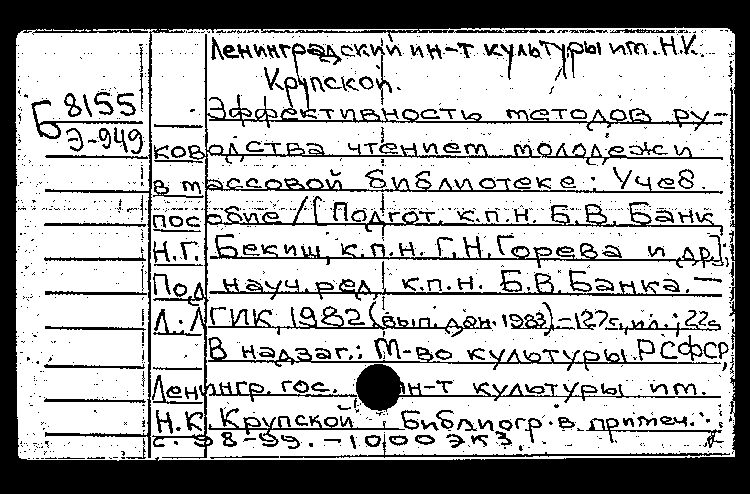 Ленинградский ин-т культуры им. Н.К.
Крупской.
Б 8155
Э-949
Эффективность методов ру-
ководства чтением молодежи
в массовой библиотеке: Учеб.
пособие / [Подгот. к.п.н. Б.В. Банк,
Н.Г. Бекиш, к.п.н. Г.Н. Горева и др.];
Под науч. ред. к.п.н. Б.В. Банка. —
Л.: ЛГИК, 1982 (вып. дан. 1983).-127с., ил.; 22с
В надзаг.: М-во культуры РСФСР,
Ленингр. гос. ин-т культуры им.
Н.К. Крупской. Библиогр. в примеч.:
с. 98-99. - 1000 экз.